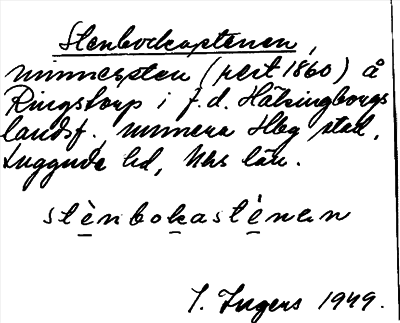 Stenbockastenen,
minnessten (rest 1860) å
Ringstorp i f.d. Hälsingborgs
landsf., numera Hbg stad,
Luggude hd, Mhs län.
stènbokasténan
I. Ingers 1949.